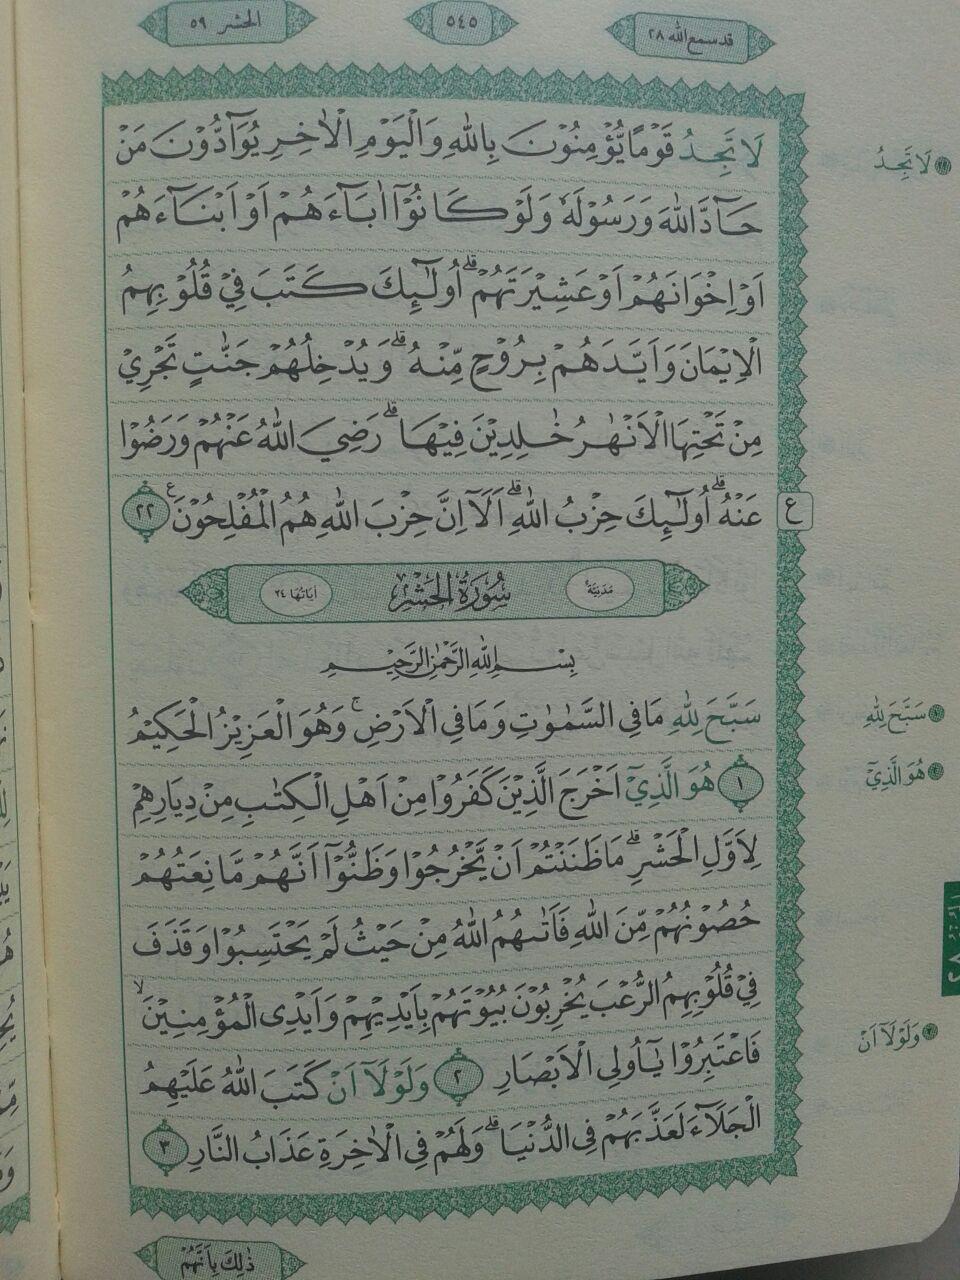 قدسمع الله ٢٨
٥٤٥
الحشر ٥٩
لَا تَجِدُ قَوْمًا يُّؤْمِنُوْنَ بِاللّٰهِ وَالْيَوْمِ الْاٰخِرِ يُوَآدُّوْنَ مَنْ
حَآدَّ اللّٰهَ وَرَسُوْلَهٗ وَلَوْ كَانُوْٓا اٰبَآءَهُمْ اَوْ اَبْنَآءَهُمْ
اَوْ اِخْوَانَهُمْ اَوْ عَشِيْرَتَهُمْۗ اُولٰۤىِٕكَ كَتَبَ فِيْ قُلُوْبِهِمُ
الْاِيْمَانَ وَاَيَّدَهُمْ بِرُوْحٍ مِّنْهُۗ وَيُدْخِلُهُمْ جَنّٰتٍ تَجْرِيْ
مِنْ تَحْتِهَا الْاَنْهٰرُ خٰلِدِيْنَ فِيْهَاۗ رَضِيَ اللّٰهُ عَنْهُمْ وَرَضُوْا
عَنْهُۗ اُولٰۤىِٕكَ حِزْبُ اللّٰهِۗ اَلَآ اِنَّ حِزْبَ اللّٰهِ هُمُ الْمُفْلِحُوْنَ ࣖ ٢٢
ع
مَدَنِيَّةٌ سُوْرَةُ الْحَشْرِ اٰيَاتُهَا ٢٤
بِسْمِ اللّٰهِ الرَّحْمٰنِ الرَّحِيْمِ
سَبَّحَ لِلّٰهِ مَا فِى السَّمٰوٰتِ وَمَا فِى الْاَرْضِۚ وَهُوَ الْعَزِيْزُ الْحَكِيْمُ
١ هُوَ الَّذِيْٓ اَخْرَجَ الَّذِيْنَ كَفَرُوْا مِنْ اَهْلِ الْكِتٰبِ مِنْ دِيَارِهِمْ
لِاَوَّلِ الْحَشْرِۗ مَا ظَنَنْتُمْ اَنْ يَّخْرُجُوْا وَظَنُّوْٓا اَنَّهُمْ مَّانِعَتُهُمْ
حُصُوْنُهُمْ مِّنَ اللّٰهِ فَاَتٰىهُمُ اللّٰهُ مِنْ حَيْثُ لَمْ يَحْتَسِبُوْا وَقَذَفَ
فِيْ قُلُوْبِهِمُ الرُّعْبَ يُخْرِبُوْنَ بُيُوْتَهُمْ بِاَيْدِيْهِمْ وَاَيْدِى الْمُؤْمِنِيْنَۙ
فَاعْتَبِرُوْا يٰٓاُولِى الْاَبْصَارِ ٢ وَلَوْلَآ اَنْ كَتَبَ اللّٰهُ عَلَيْهِمُ
الْجَلَاۤءَ لَعَذَّبَهُمْ فِى الدُّنْيَاۗ وَلَهُمْ فِى الْاٰخِرَةِ عَذَابُ النَّارِ ٣
لَا تَجِدُ
سَبَّحَ لِلّٰهِ
هُوَ الَّذِيْٓ
وَلَوْلَآ اَنْ
ذٰلِكَ بِاَنَّهُمْ